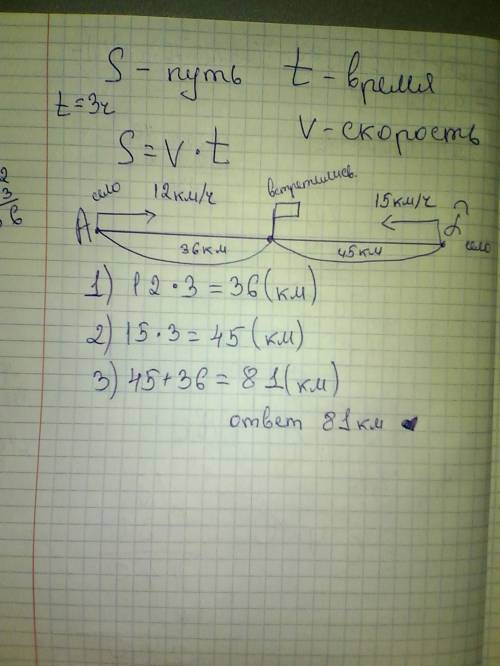 S – путь t – время
t = 3ч
V – скорость
S = V · t
село 12км/ч встретились 15км/ч
A село
36км 45км
1) 12 · 3 = 36 (км)
2) 15 · 3 = 45 (км)
3) 45 + 36 = 81 (км)
ответ 81км